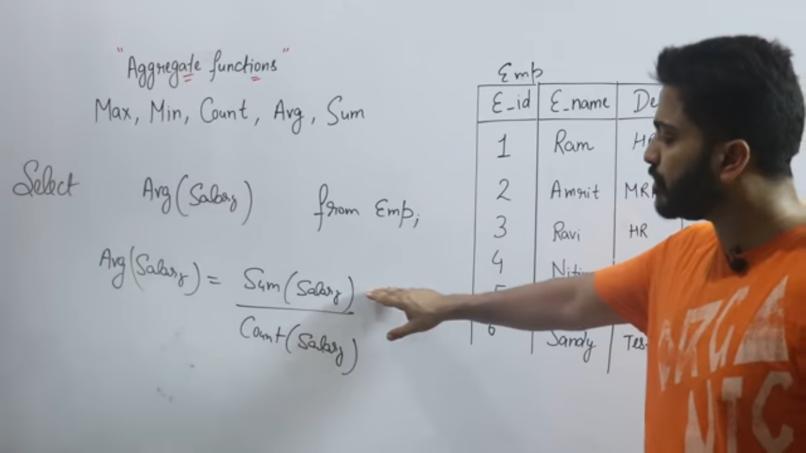 "Aggregate functions"
Max, Min, Count, Avg, Sum
Select Avg(Salary) from Emp;
Avg(Salary) = Sum(Salary)
Count(Salary)
Emp
E_id E_name
1 Ram
2 Amrit
3 Ravi HR
4
6 Sandy